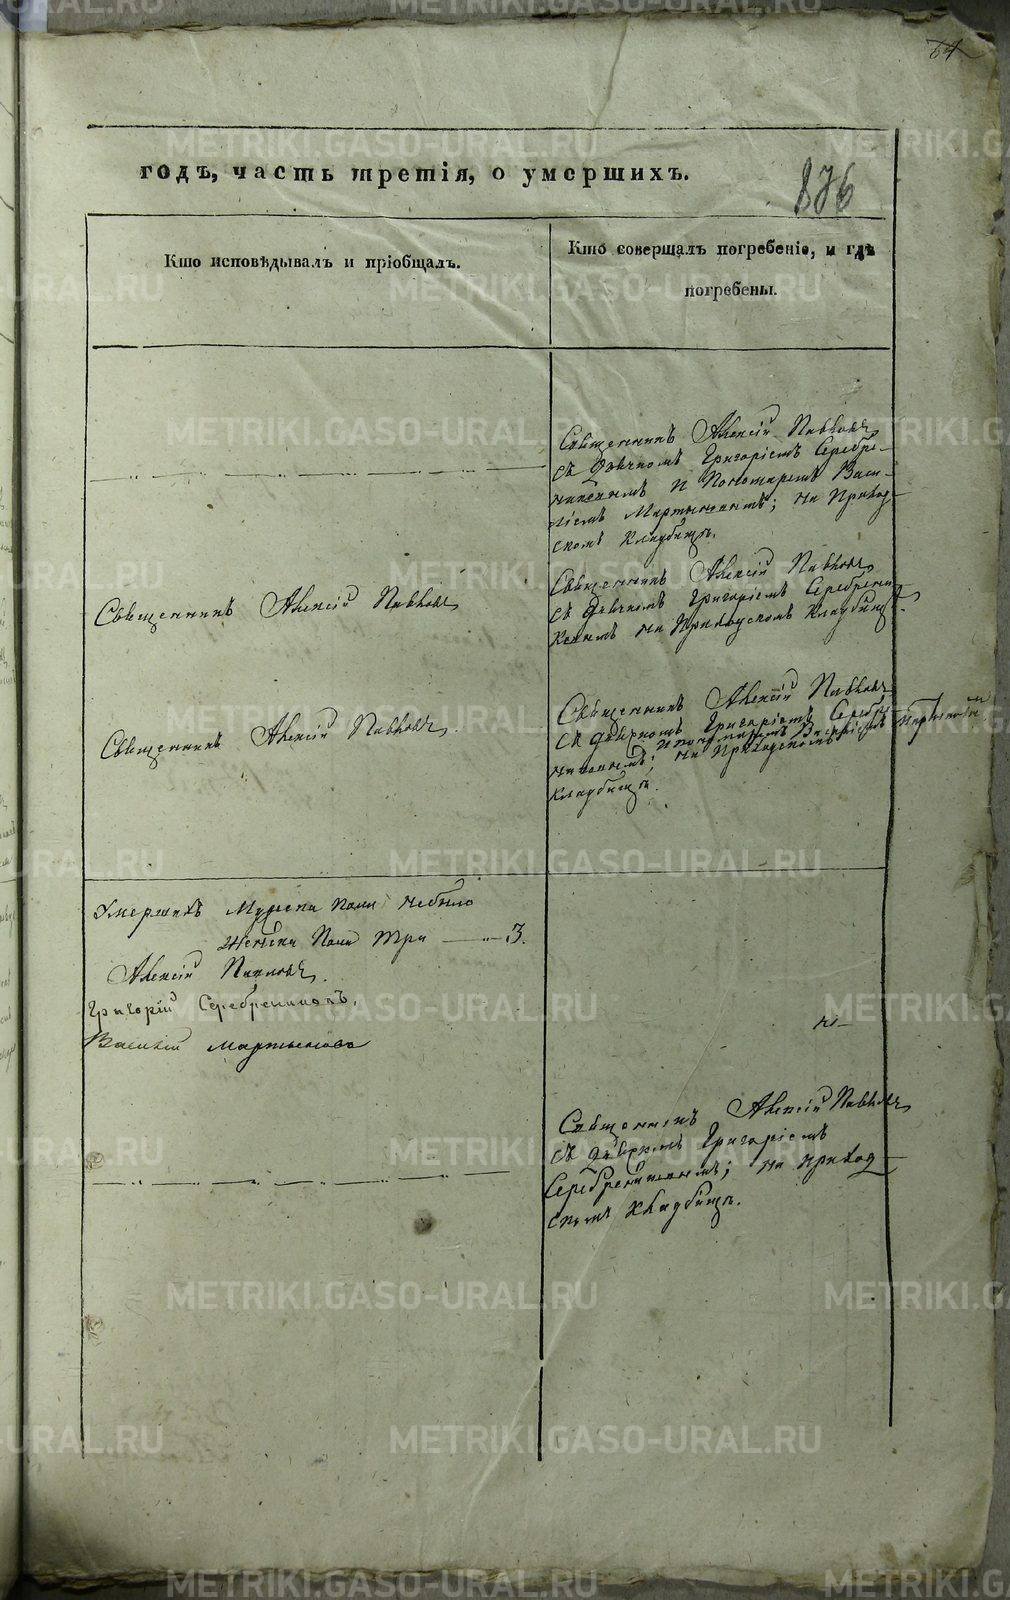 64
годъ, часть третія, о умершихъ.
876
Кто исповѣдывалъ и пріобщалъ.
Кто совершалъ погребеніе, и гдѣ
погребены.
Священникъ Алексій Павловъ
съ Дьячкомъ Григоріемъ Серебре-
никовымъ и Пономаремъ Васи-
ліемъ Мартыновымъ; на Приход-
скомъ кладбищѣ.
Священникъ Алексій Павловъ
Священникъ Алексій Павловъ
съ дьячкомъ Григоріемъ Серебрени-
ковымъ на Приходскомъ Кладбищѣ.
Священникъ Алексій Павловъ.
Священникъ Алексій Павловъ
съ дьячкомъ Григоріемъ Серебре-
никовымъ; и пономаремъ Василіемъ
на Приходскомъ
кладбищѣ.
Умершихъ Мужска пола небыло
Женска Пола три 3.
Алексій Павловъ.
Григорій Серебрениковъ.
Василей Мартыновъ
Священникъ Алексій Павловъ
съ дьячкомъ Григоріемъ
Серебрениковымъ; на приход-
скомъ Кладбищѣ.
METRIKI.GASO-URAL.RU